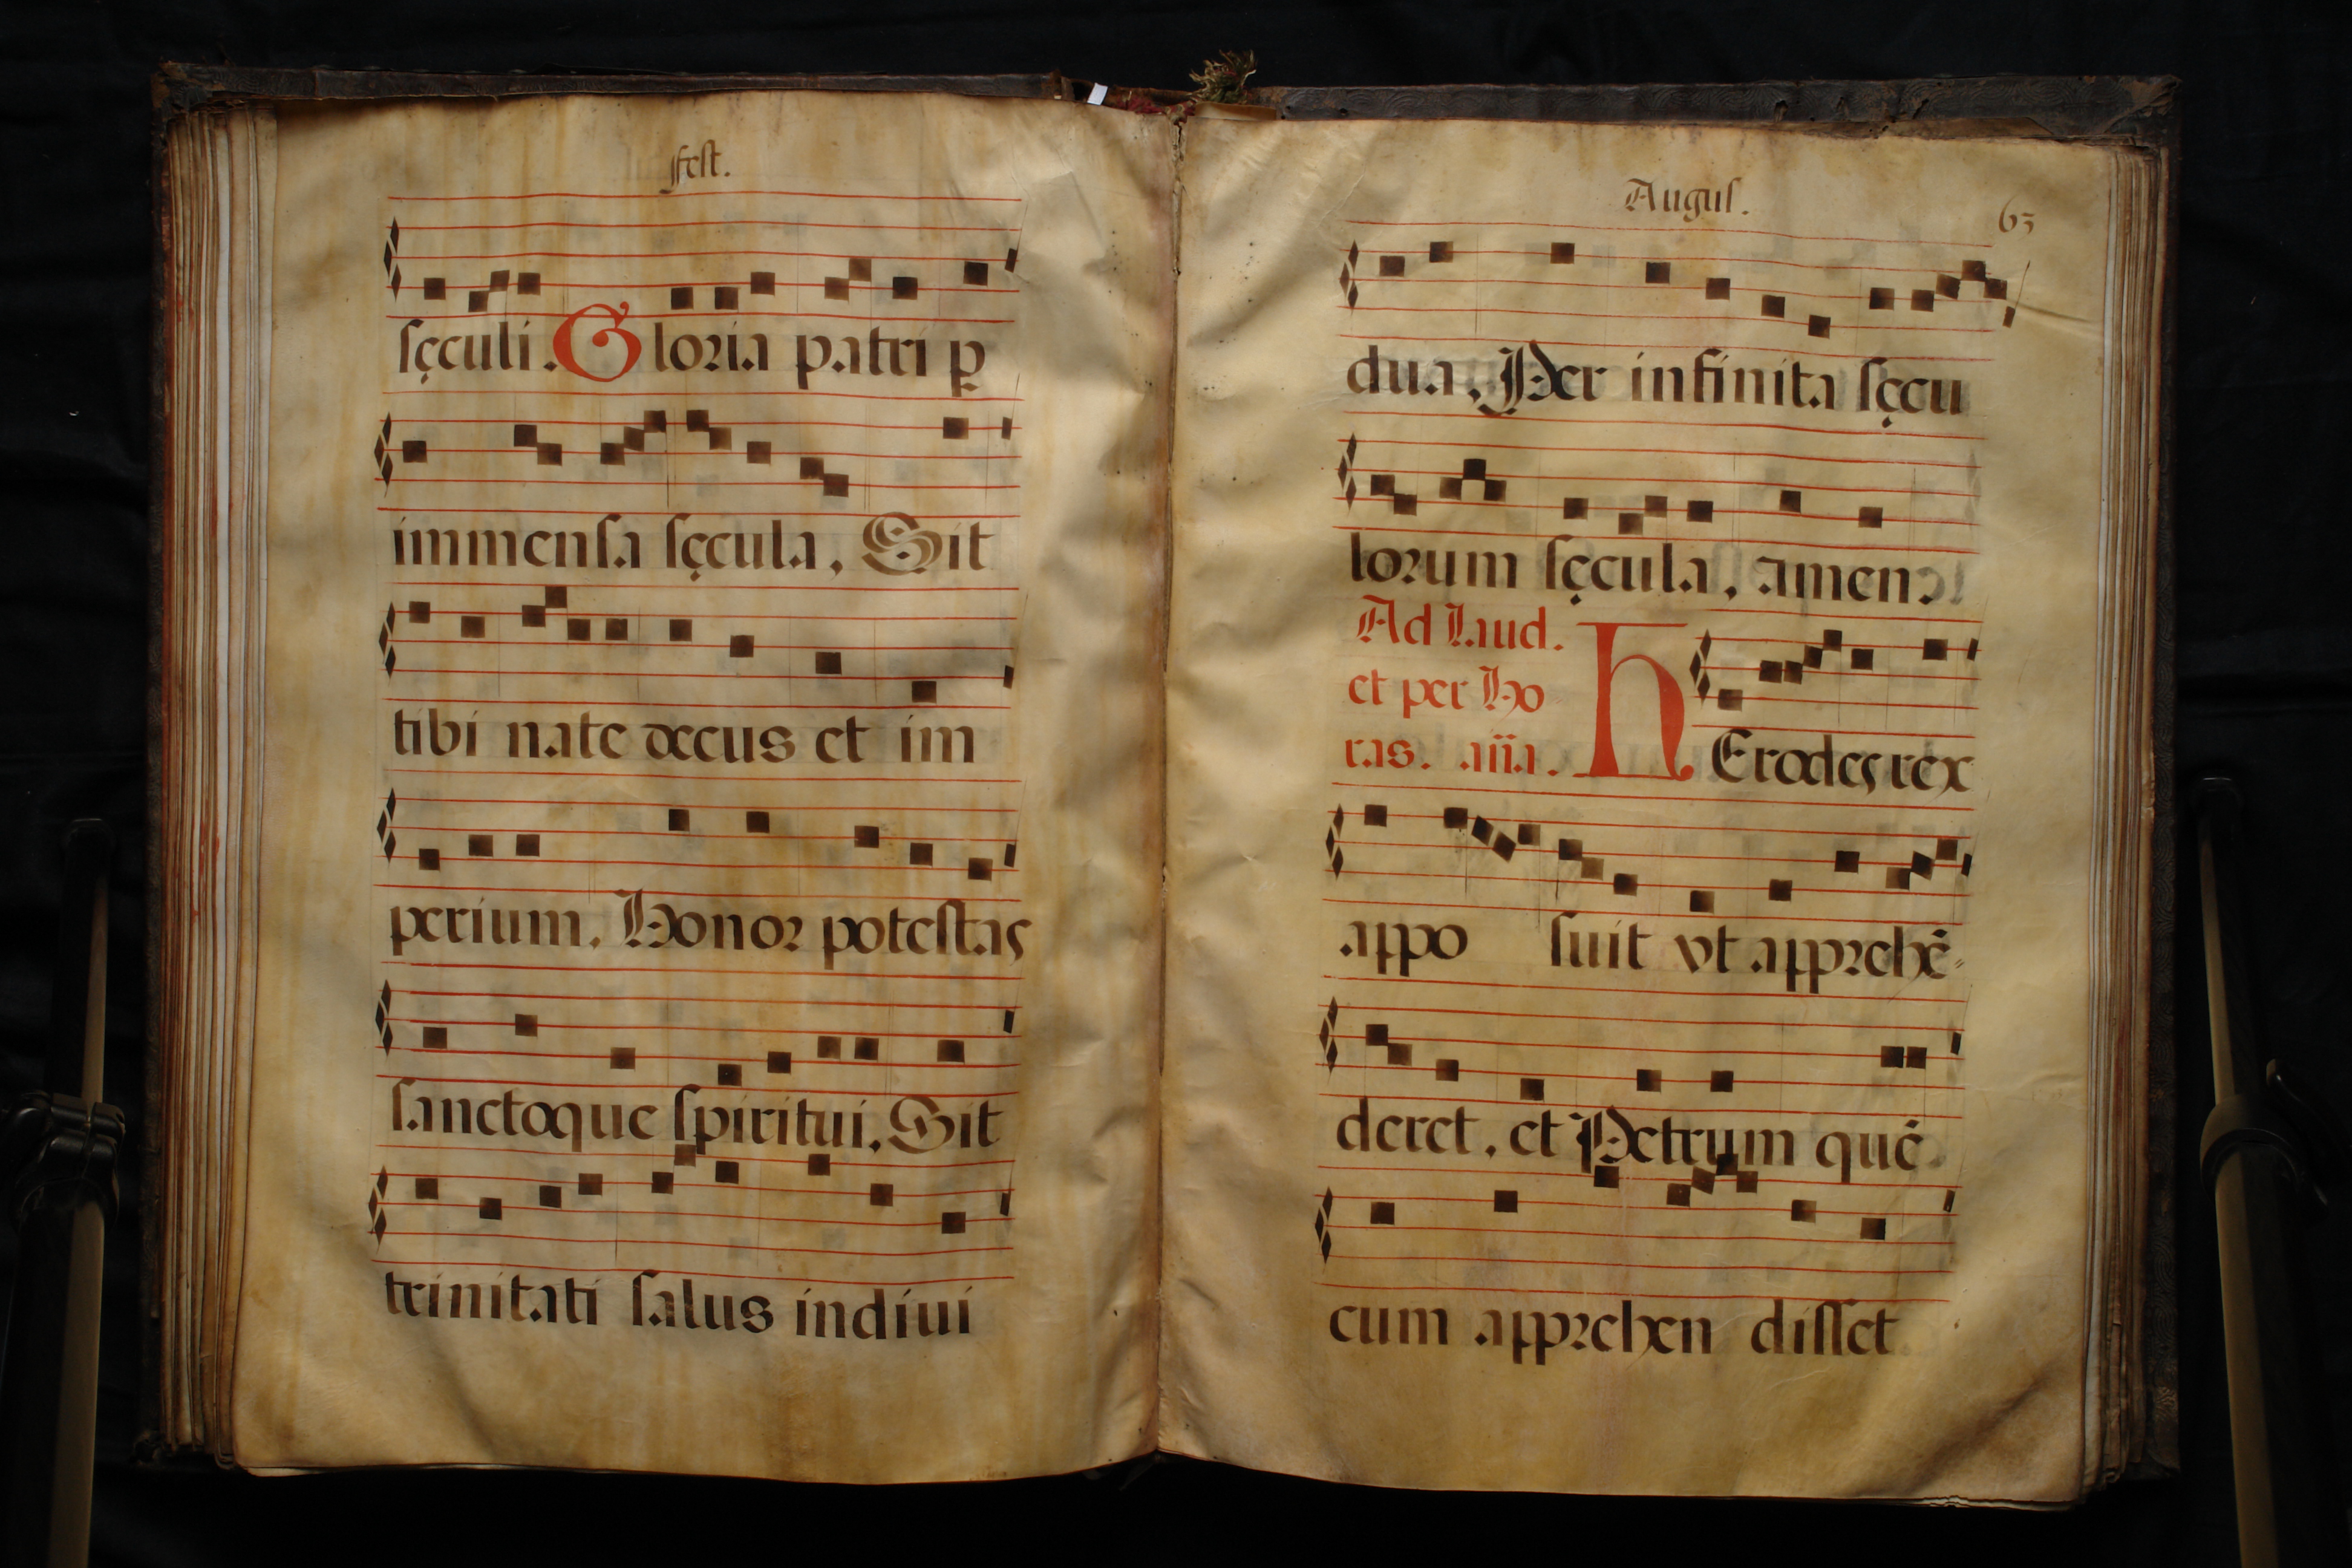 fest.
sęculi. Gloria patri ꝑ
immensa sęcula, Sit
tibi nate decus et im
perium. Honor potestas
sanctoque spiritui. Sit
trinitati salus indiui
Augus. 63
dua, Per infinita sęcu
lorum sęcula, amen.
Ad Laud.
et per Ho
ras. aña.
hErodes rex
appo suit vt apprehē
deret, et Petrum quē
cum apprehen disset